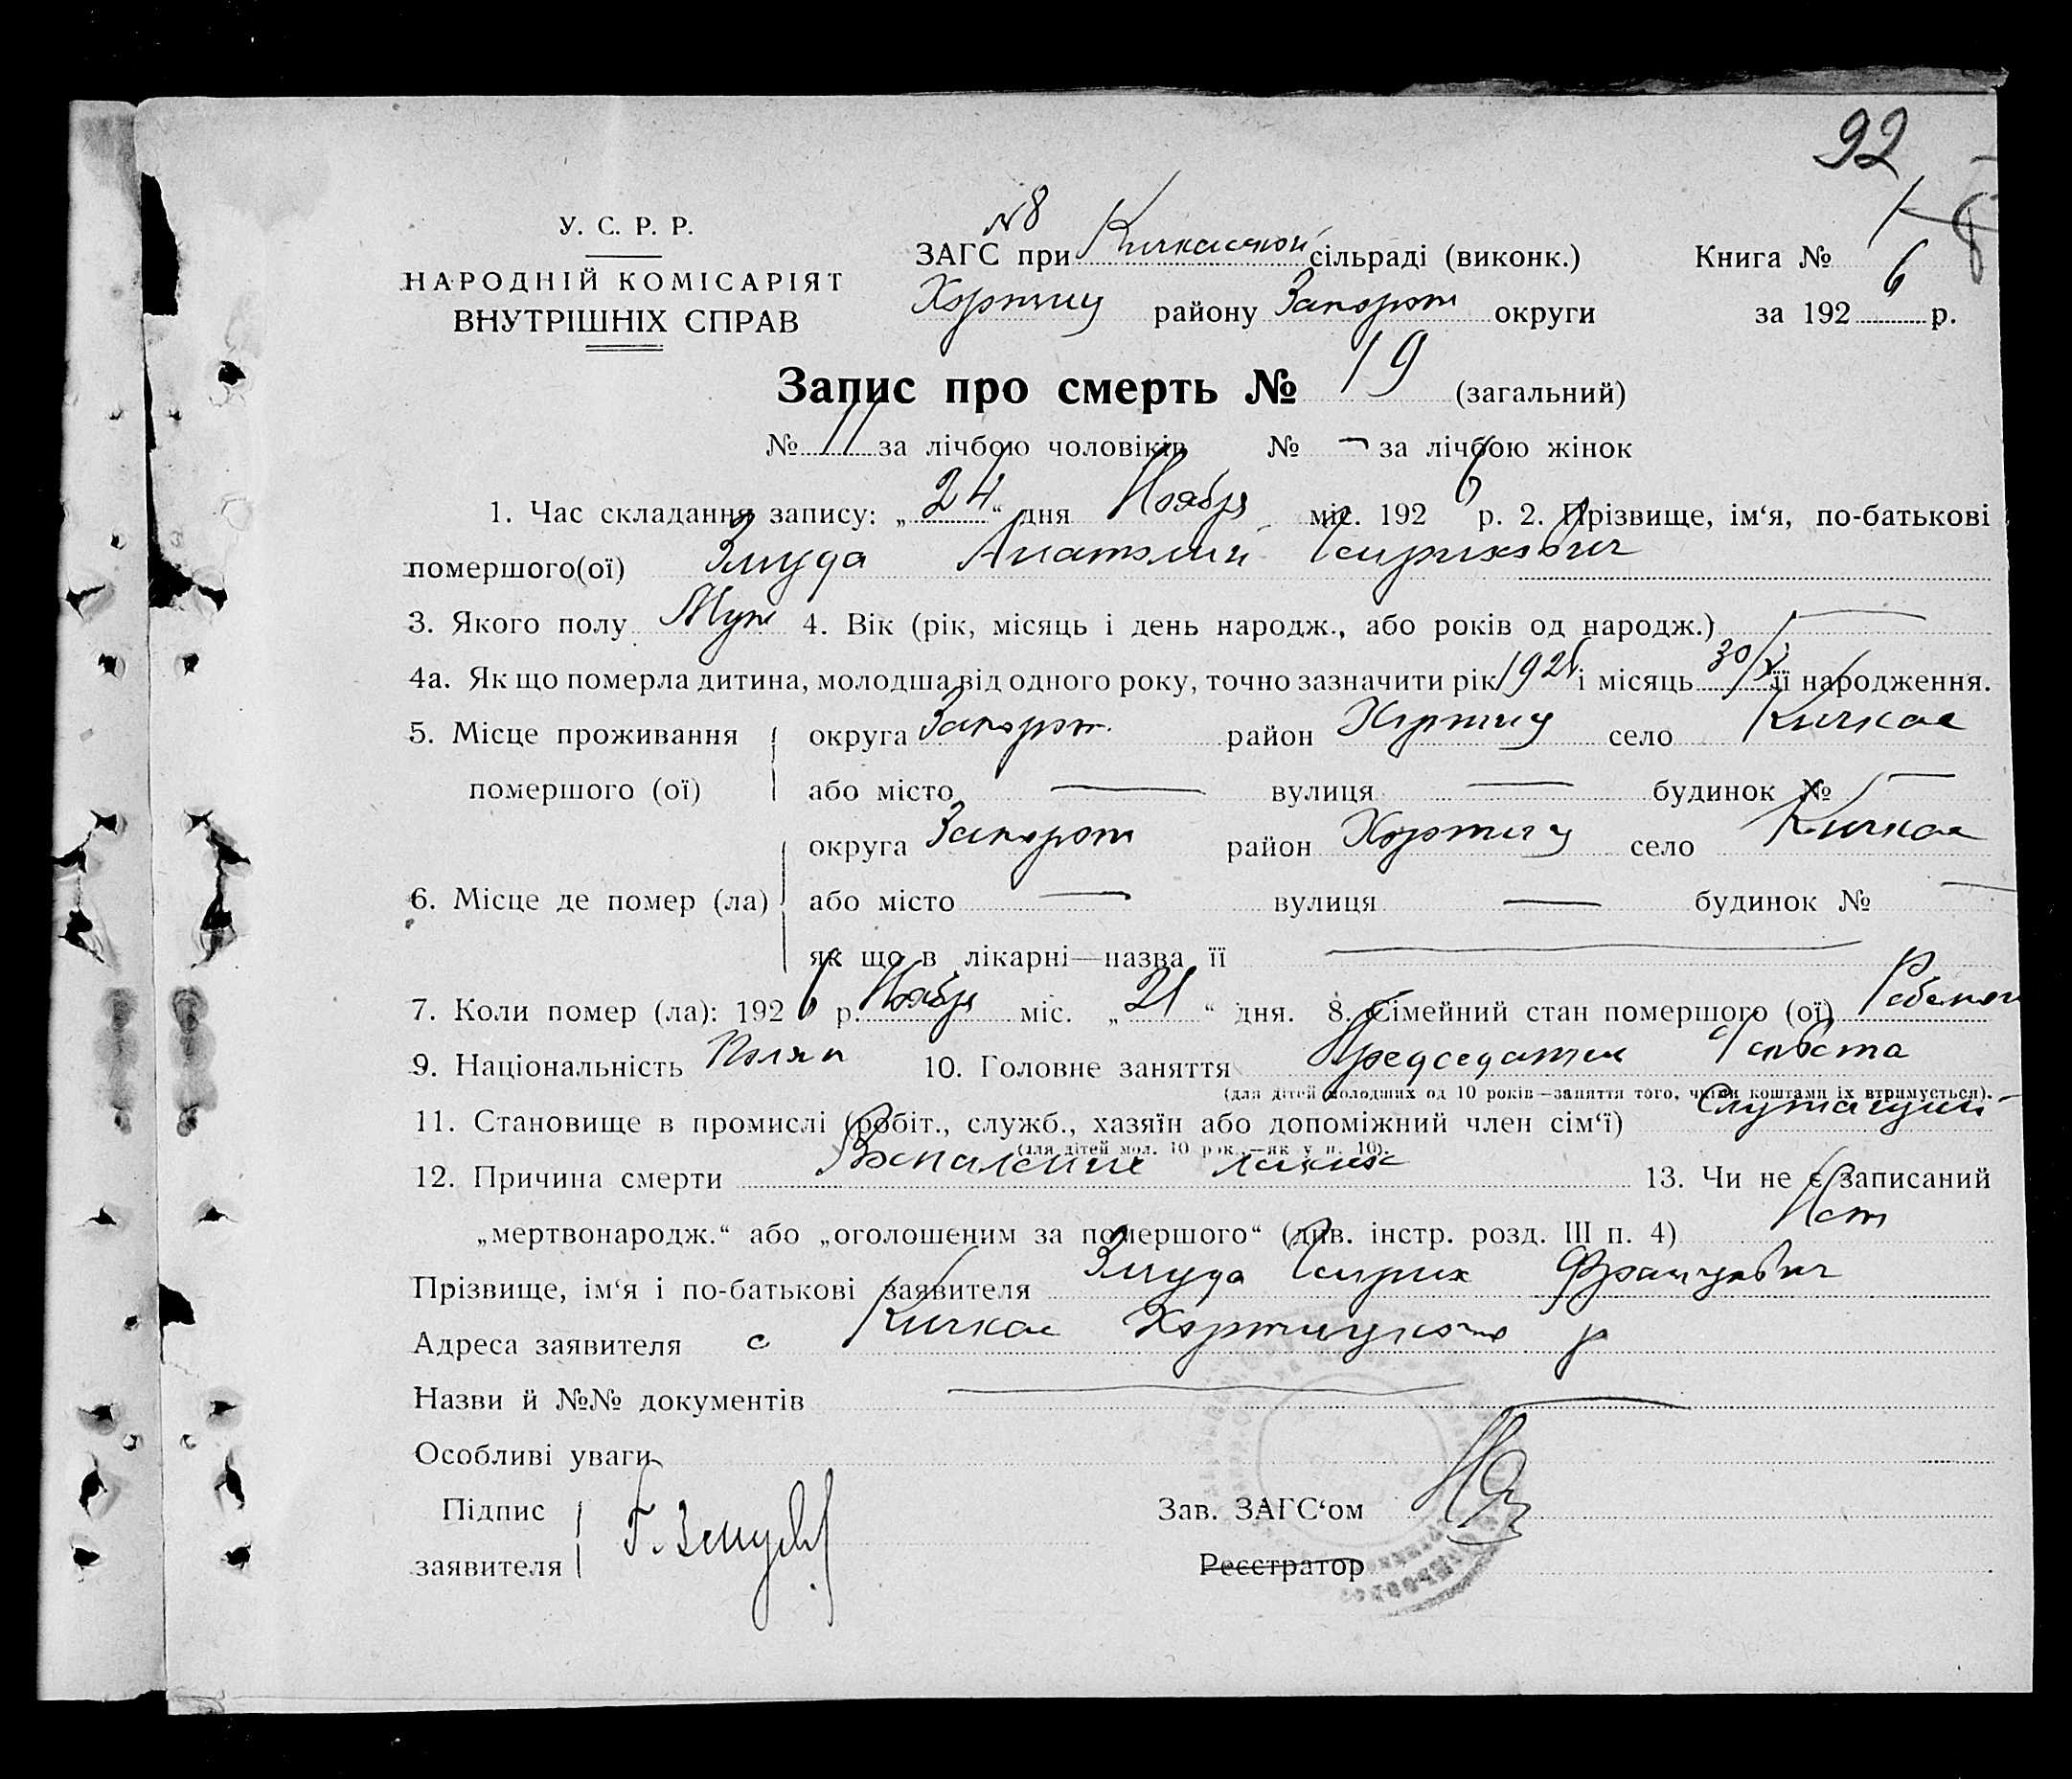 92
У. С. Р. Р.
НАРОДНІЙ КОМІСАРІЯТ
ВНУТРІШНІХ СПРАВ
№8
ЗАГС при Кичкасской сільраді (виконк.)
Хортиц району Запорож округи
Книга № 1
за 1926 р.
Запис про смерть № 19 (загальний)
№ 11 за лічбою чоловіків № — за лічбою жінок
1. Час складання запису: „24“ дня Ноября міс. 1926 р. 2. Прізвище, ім‘я, по-батькові
помершого(ої) Змуда Анатолий Генрихович
3. Якого полу Муж 4. Вік (рік, місяць і день народж., або років од народж.) —
4а. Як що померла дитина, молодша від одного року, точно зазначити рік 192 і місяць 30/ її народження.
5. Місце проживання округа Запорож район Хортиц село Кичкас
помершого (ої) або місто — вулиця — будинок № —
округа Запорож район Хортиц село Кичкас
6. Місце де помер (ла) або місто — вулиця — будинок № —
як що в лікарні—назва її —
7. Коли помер (ла): 1926 р. Ноября міс. „21“ дня. 8. Сімейний стан помершого (ої) Ребенок
9. Національність Поляк 10. Головне заняття Председатель с/совета
(для дітей молодших од 10 років—заняття того, чиїми коштами їх втримується).
11. Становище в промислі (робіт., служб., хазяїн або допоміжний член сім‘ї) Служащий
(для дітей мол. 10 рок.—як у п. 10).
12. Причина смерти Воспаление легких 13. Чи не є записаний
„мертвонародж.“ або „оголошеним за помершого“ (див. інстр. розд. III п. 4) Нет
Прізвище, ім‘я і по-батькові заявителя Змуда Генрих Францевич
Адреса заявителя с Кичкас Хортицкого р
Назви й №№ документів —
Особливі уваги
Підпис
заявителя Г. Змуда
Зав. ЗАГС‘ом
Реєстратор